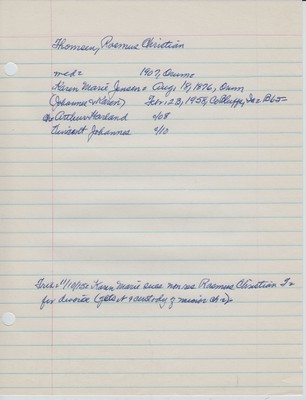 Thomsen, Rasmus Christian
md= 1907, Orum=
Karen Marie Jensen= Aug. 18, 1876, Orum
(Johannes & Karen) Feb. 23, 1958, CoBluffs, Ia= B65=
ch= Arthur Harland 4/08
Vincent Johannes 4/10
Trib= 11/10/15= Karen Marie sues non res Rasmus Christian T=
for divorce (gets it & custody of minor ch=)=